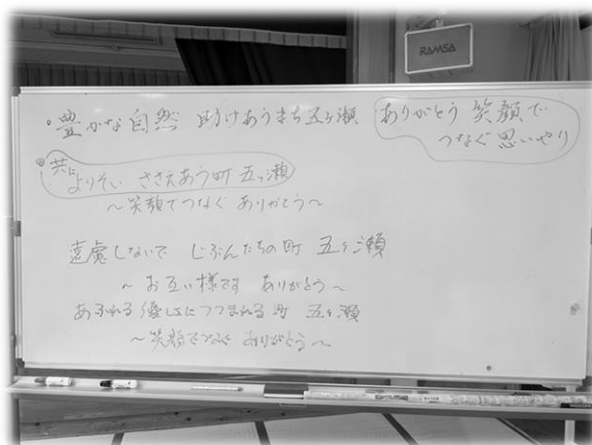 RAMSA
・豊かな自然 助けあうまち五ヶ瀬
ありがとう 笑顔で
つなぐ思いやり
共に
よりそい ささえあう町 五ヶ瀬
～笑顔でつなぐ ありがとう～
遠慮しないで じぶんたちの町 五ヶ瀬
～お互い様です ありがとう～
あふれる優しさにつつまれる町 五ヶ瀬
～笑顔でつなぐ ありがとう～